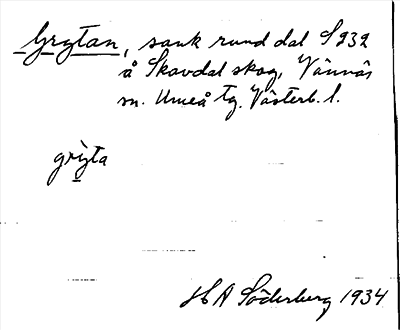 Grytan, sank rund dal S 232
å Skavdal skog, Vännäs
sn. Umeå tg. Västerb. l.
grỳta
H A Söderberg 1934